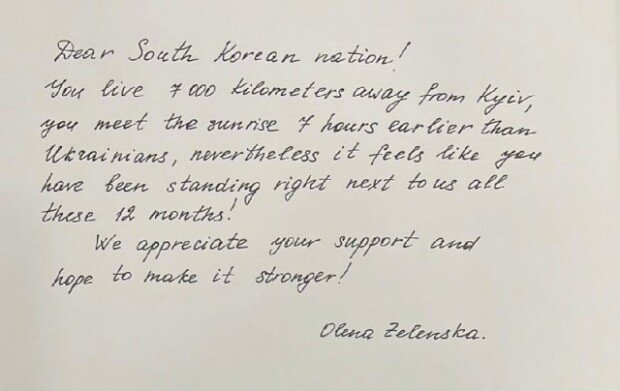 Dear South Korean nation!
You live 7 000 kilometers away from Kyiv,
you meet the sunrise 7 hours earlier than
Ukrainians, nevertheless it feels like you
have been standing right next to us all
these 12 months!
We appreciate your support and
hope to make it stronger!
Olena Zelenska.